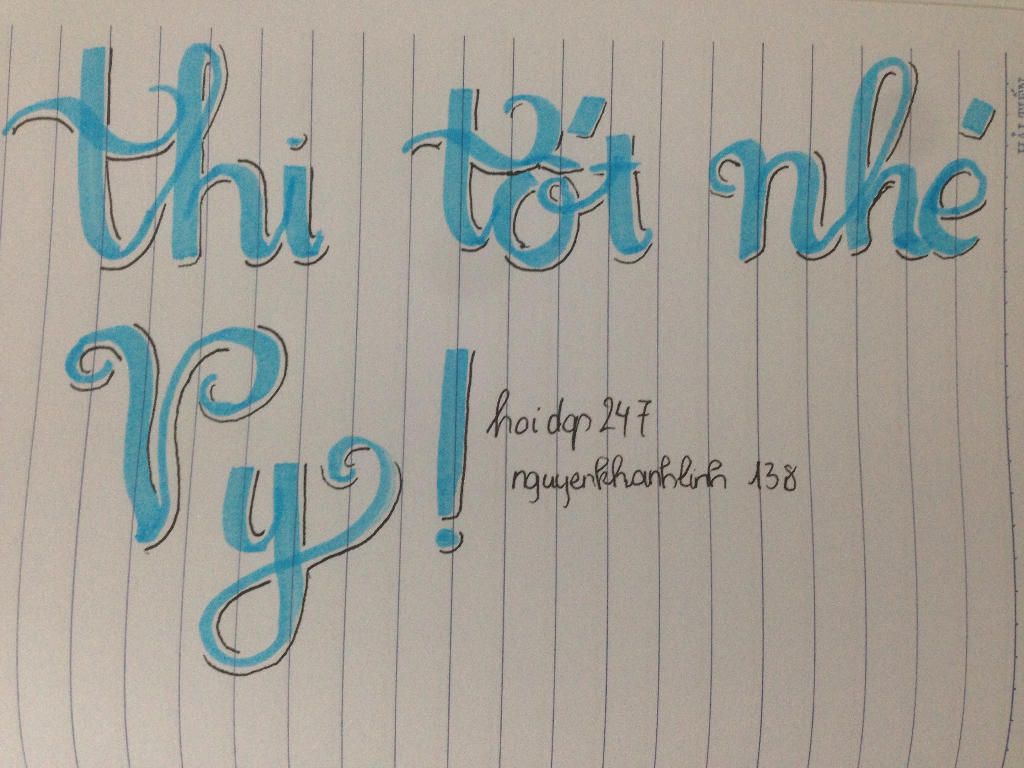 thi tốt nhé
Vy !
hoidap 247
nguyenkhanhlinh 138
HẢI TIẾN